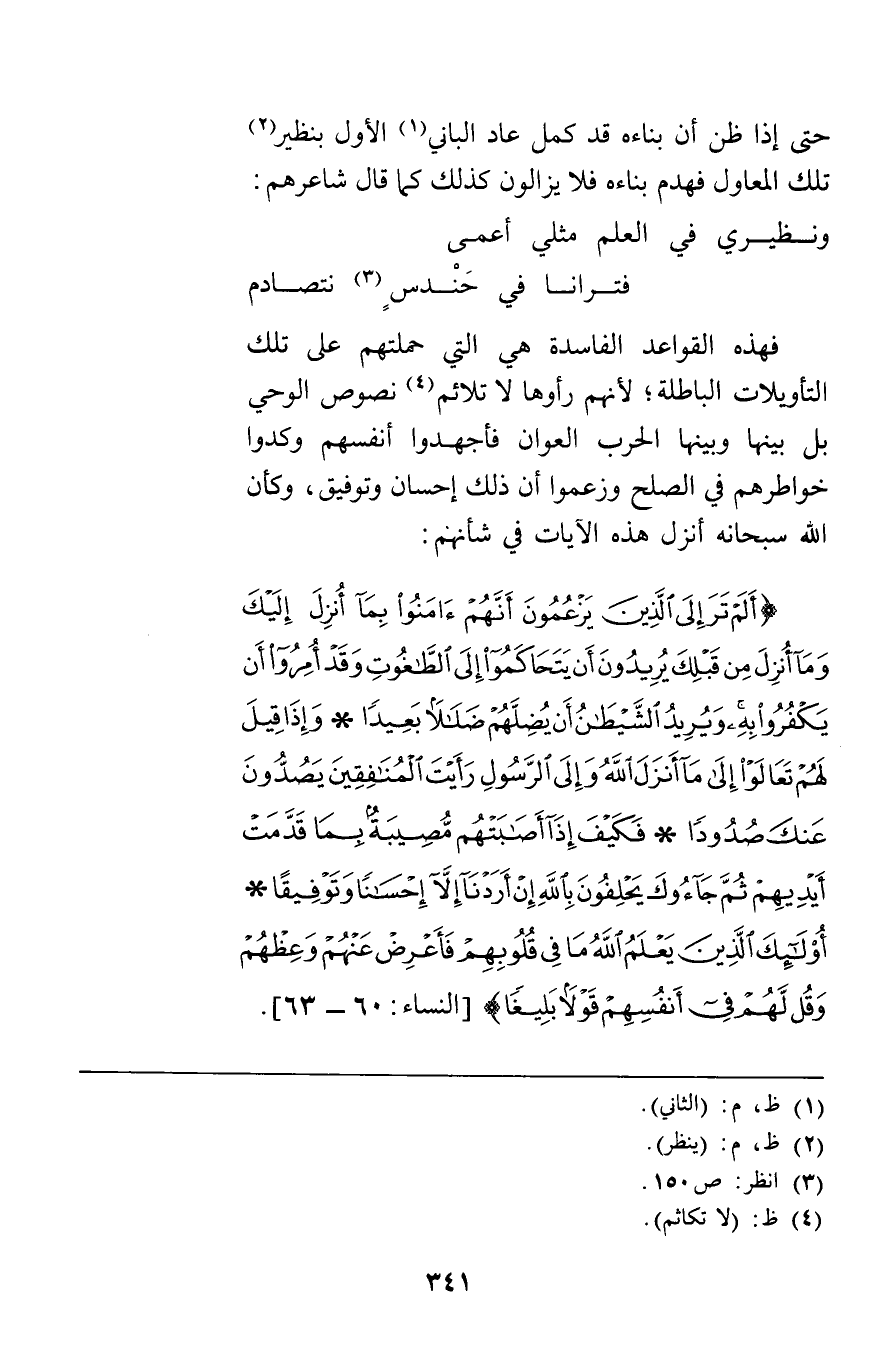 حتى إذا ظن أن بناءه قد كمل عاد الباني(١) الأول بنظير(٢)
تلك المعاول فهدم بناءه فلا يزالون كذلك كما قال شاعرهم :
ونــظيـــري في العلم مثلي أعمــى
فتــرانــا في حَنْــدسٍ(٣) نتصــادم
فهذه القواعد الفاسدة هي التي حملتهم على تلك
التأويلات الباطلة؛ لأنهم رأوها لا تلائم(٤) نصوص الوحي
بل بينها وبينها الحرب العوان فأجهدوا أنفسهم وكدوا
خواطرهم في الصلح وزعموا أن ذلك إحسان وتوفيق، وكأن
الله سبحانه أنزل هذه الآيات في شأنهم :
﴿أَلَمْ تَرَ إِلَى ٱلَّذِينَ يَزْعُمُونَ أَنَّهُمْ ءَامَنُوا۟ بِمَآ أُنزِلَ إِلَيْكَ
وَمَآ أُنزِلَ مِن قَبْلِكَ يُرِيدُونَ أَن يَتَحَاكَمُوٓا۟ إِلَى ٱلطَّٰغُوتِ وَقَدْ أُمِرُوٓا۟ أَن
يَكْفُرُوا۟ بِهِۦ وَيُرِيدُ ٱلشَّيْطَٰنُ أَن يُضِلَّهُمْ ضَلَٰلًۢا بَعِيدًا * وَإِذَا قِيلَ
لَهُمْ تَعَالَوْا۟ إِلَىٰ مَآ أَنزَلَ ٱللَّهُ وَإِلَى ٱلرَّسُولِ رَأَيْتَ ٱلْمُنَٰفِقِينَ يَصُدُّونَ
عَنكَ صُدُودًا * فَكَيْفَ إِذَآ أَصَٰبَتْهُم مُّصِيبَةٌۢ بِمَا قَدَّمَتْ
أَيْدِيهِمْ ثُمَّ جَآءُوكَ يَحْلِفُونَ بِٱللَّهِ إِنْ أَرَدْنَآ إِلَّآ إِحْسَٰنًا وَتَوْفِيقًا *
أُو۟لَٰٓئِكَ ٱلَّذِينَ يَعْلَمُ ٱللَّهُ مَا فِى قُلُوبِهِمْ فَأَعْرِضْ عَنْهُمْ وَعِظْهُمْ
وَقُل لَّهُمْ فِىٓ أَنفُسِهِمْ قَوْلًۢا بَلِيغًا﴾ [النساء : ٦٠ – ٦٣].
(١) ظ، م : (الثاني).
(٢) ظ، م : (ينظر).
(٣) انظر : ص١٥٠.
(٤) ظ : (لا تكاثم).
٣٤١